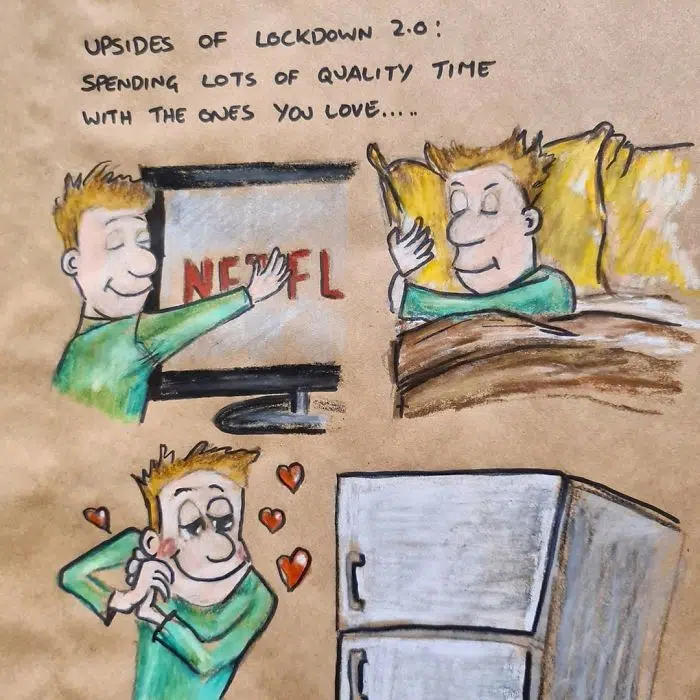 UPSIDES OF LOCKDOWN 2.0:
SPENDING LOTS OF QUALITY TIME
WITH THE ONES YOU LOVE.....
NETFL